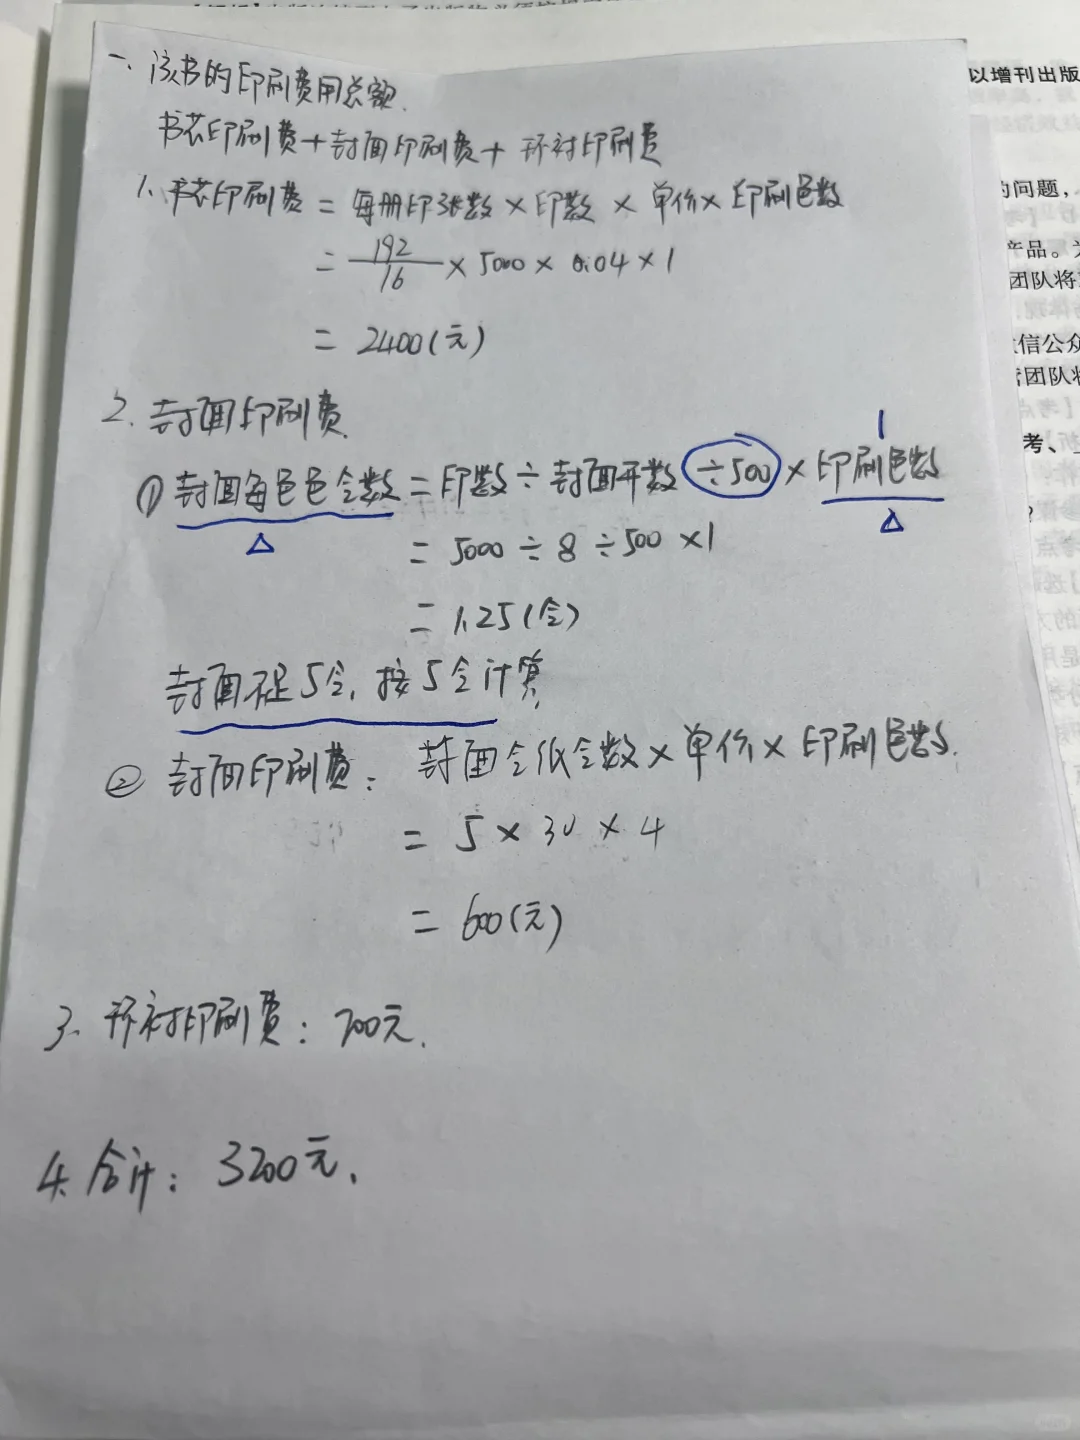 一、该书的印刷费用总额.
书芯印刷费+封面印刷费+环衬印刷费
1、书芯印刷费 = 每册印张数 × 印数 × 单价 × 印刷色数
= 192/16 × 5000 × 0.04 × 1
= 2400(元)
2. 封面印刷费.
1
① 封面每色色令数 = 印数 ÷ 封面开数 ÷500 × 印刷色数
= 5000 ÷ 8 ÷ 500 × 1
= 1.25(令)
封面不足5令, 按5令计算
② 封面印刷费: 封面令纸令数 × 单价 × 印刷色数.
= 5 × 30 × 4
= 600(元)
3、环衬印刷费: 200元.
4. 合计: 3200元.
以增刊出版
的问题,
产品。
团队将
信公众
团队将
考、